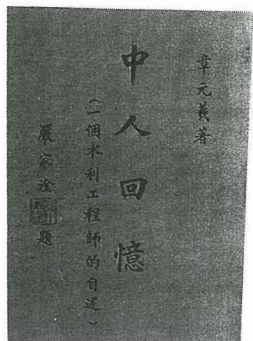 章元羲著
中人回憶
（一個水利工程師的自述）
嚴家淦題